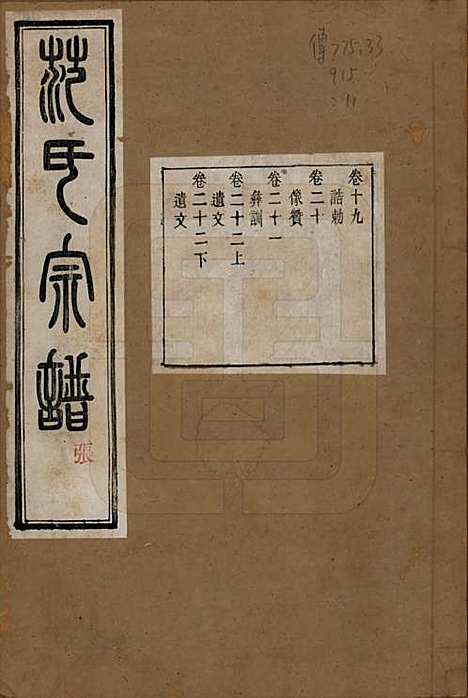 范氏宗譜
張
傳 775.33
915
:11
卷十九
誥勅
卷二十
像贊
卷二十一
彝訓
卷二十二上
遺文
卷二十二下
遺文